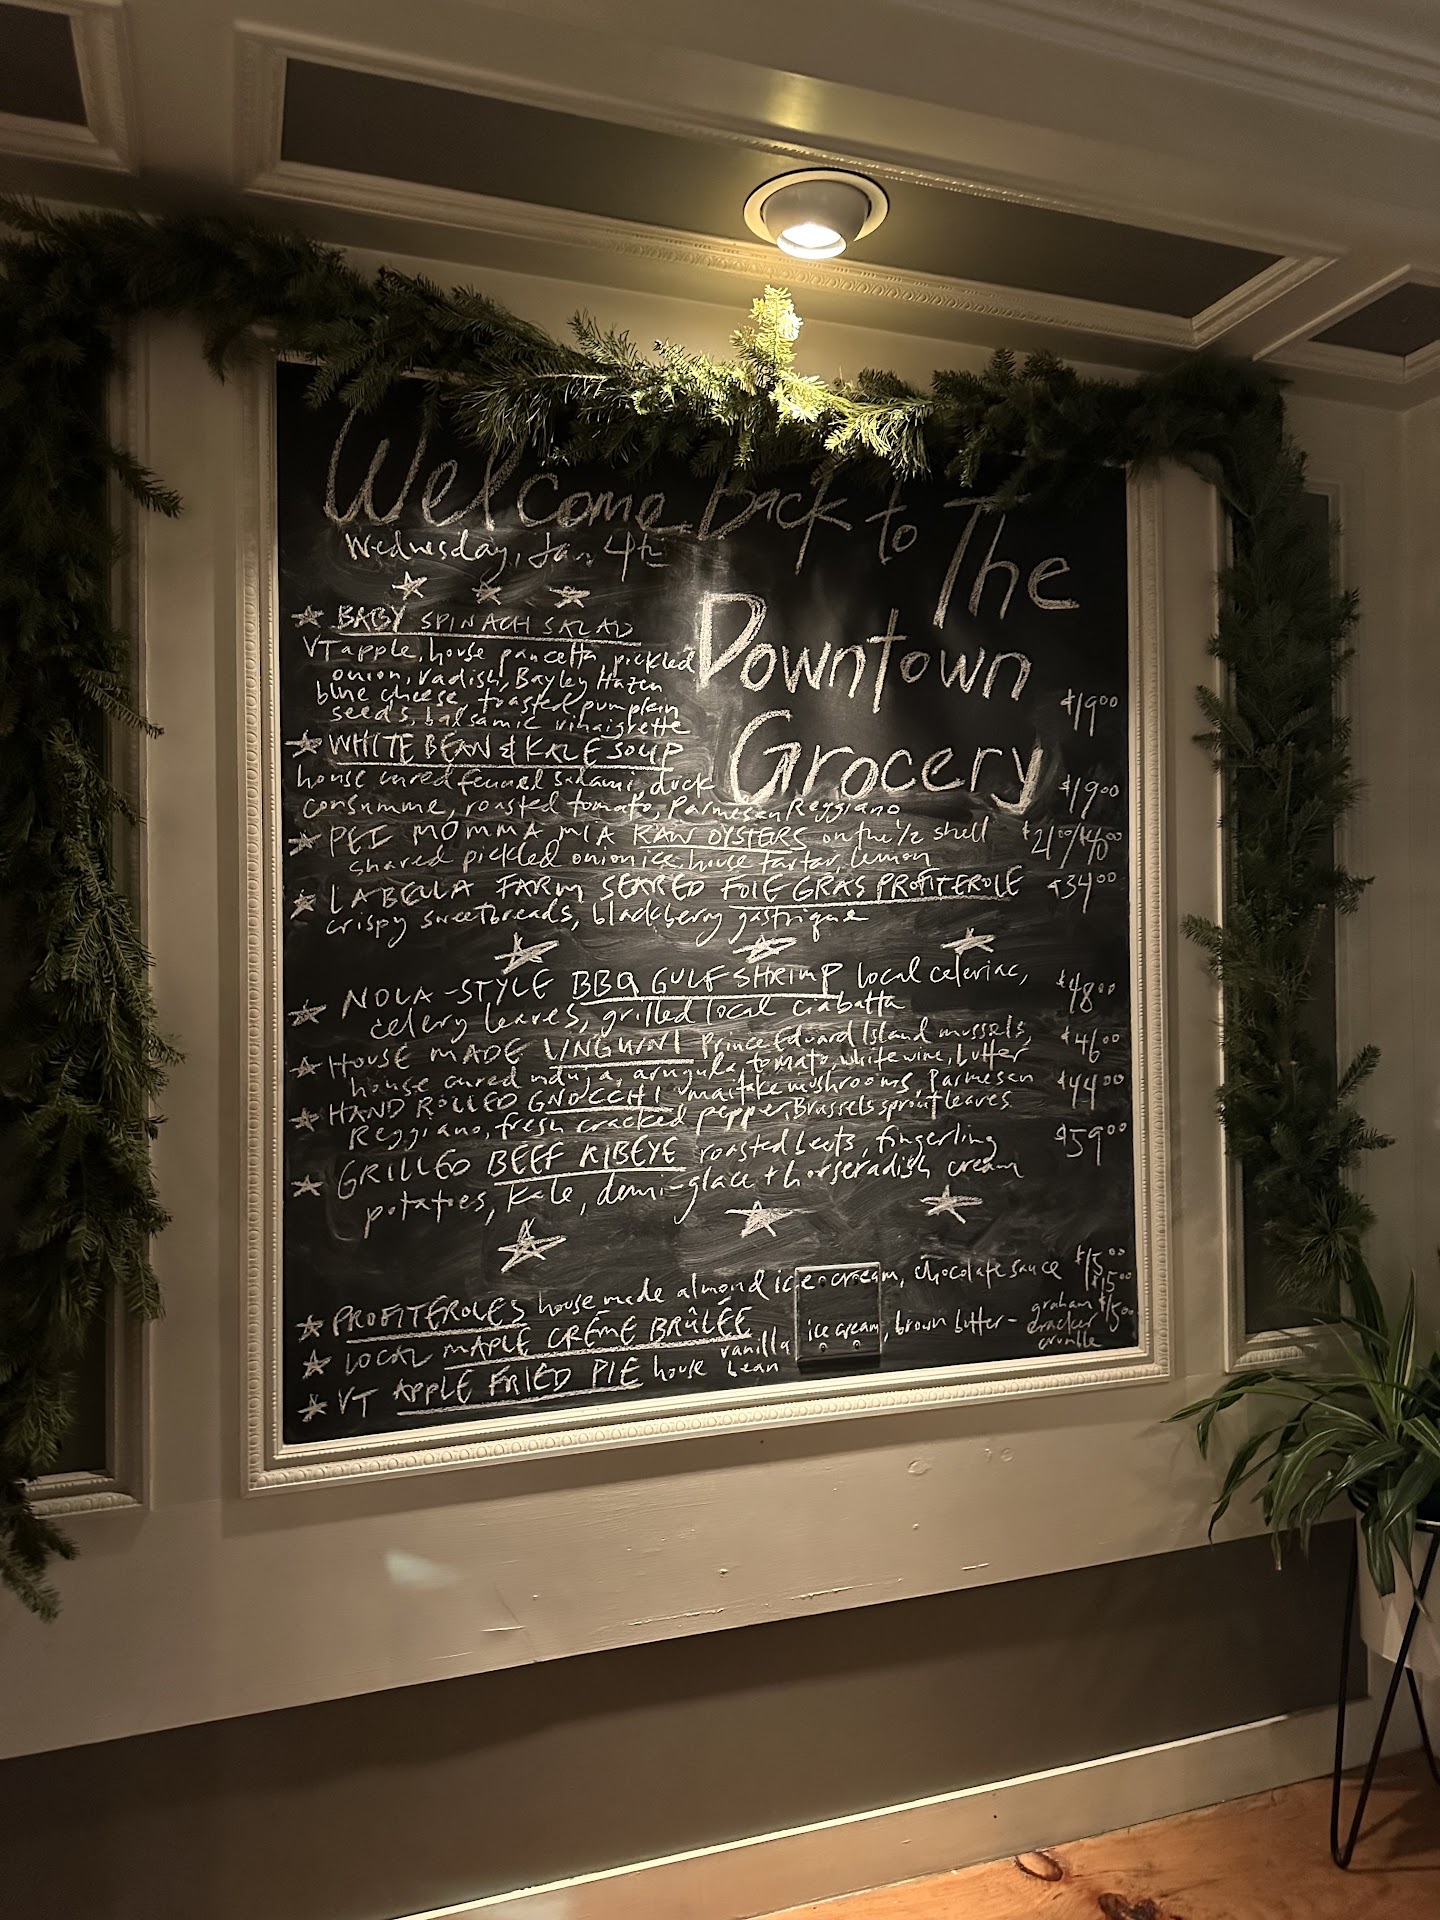 Welcome back to The
Wednesday, Jan 4th
Downtown
Grocery
BABY SPINACH SALAD
VT apple, house pancetta, pickled
onion, radish, Bayley Hazen
blue cheese, toasted pumpkin
seeds, balsamic vinaigrette $19.00
WHITE BEAN & KALE SOUP
house cured fennel salami, duck $19.00
consumme, roasted tomato, Parmesan Reggiano
PEI MOMMA MIA RAW OYSTERS on the 1/2 shell $21.00/$40.00
shared pickled onion ice, house tartar, lemon
LABELLA FARM SEARED FOIE GRAS PROFITEROLE $34.00
crispy sweetbreads, blackberry gastrique
NOLA-STYLE BBQ GULF SHRIMP local celeriac, $48.00
celery leaves, grilled local ciabatta
HOUSE MADE LINGUINI Prince Edward Island mussels, $46.00
house cured nduja, arugula, tomato, white wine, butter
HAND ROLLED GNOCCHI maitake mushrooms, Parmesan $44.00
Reggiano, fresh cracked pepper, Brussels sprout leaves
GRILLED BEEF RIBEYE roasted beets, fingerling $59.00
potatoes, kale, demi-glace + horseradish cream
PROFITEROLES house made almond ice cream, chocolate sauce $15.00
LOCAL MAPLE CRÈME BRÛLÉE $15.00
VT APPLE FRIED PIE house vanilla bean ice cream, brown butter-graham cracker crumble $15.00